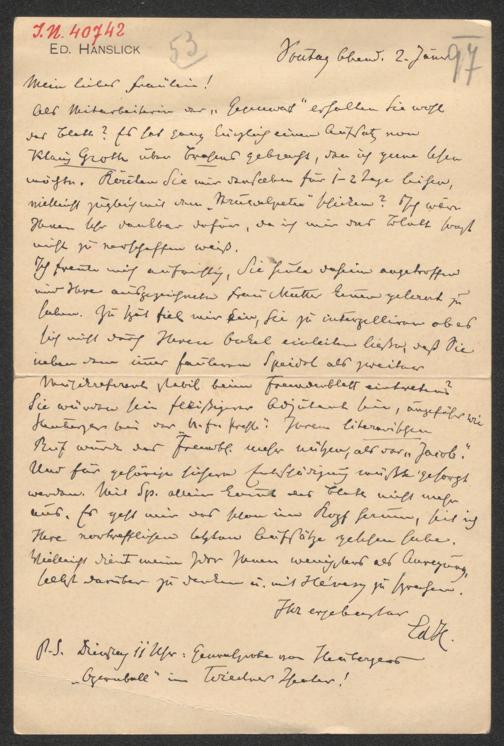 I.N. 40742
ED. HANSLICK
53
Sontag Abend. 2. Jänn 97
Mein liebes Fräulein!
Als Mitarbeiterin der „Gegenwart" erhalten Sie wohl
das Blatt? Es hat ganz kürzlich einen Aufsatz von
Klaus Groth über Brahms gebracht, den ich gerne lesen
möchte. Könten Sie mir denselben für 1-2 Tage leihen,
vielleicht zugleich mit dem schicken? Ich wäre
Ihnen sehr dankbar dafür, da ich mir das Blatt sonst
nicht zu verschaffen weiß.
Ich freute mich aufrichtig, Sie heute daheim angetroffen
und Ihre ausgezeichnete Frau Mutter kennen gelernt zu
haben. Zu spät fiel mir ein, Sie zu interpelliren ob es
sich nicht durch Ihren Onkel einleiten ließe, daß Sie
neben dem immer fauleren Speidel als zweiter
Musikreferent stabil beim Fremdenblatt eintreten?
Sie würden sein fleißigerer Adjutant sein, ungefähr wie
Heuberger bei der N. fr. Presse? Ihrem literarischen
Ruf würde das Fremdbl. mehr nützen, als der „Jacob".
Und für gehörige Entschädigung müßte gesorgt
werden. Mit Sp. allein kommt das Blatt nicht mehr
aus. Es geht mir das schon im Kopf herum, seit ich
Ihre vortrefflichen letzten Aufsätze gelesen habe.
Vielleicht dient meine Idee Ihnen wenigstens als Anregung,
selbst darüber zu denken u. mit Hévesy zu sprechen.
Ihr ergebenster
EdH.
P.S. Dienstag 11 Uhr: Generalprobe von Heubergers
„Opernball" im Wiedner Theater!